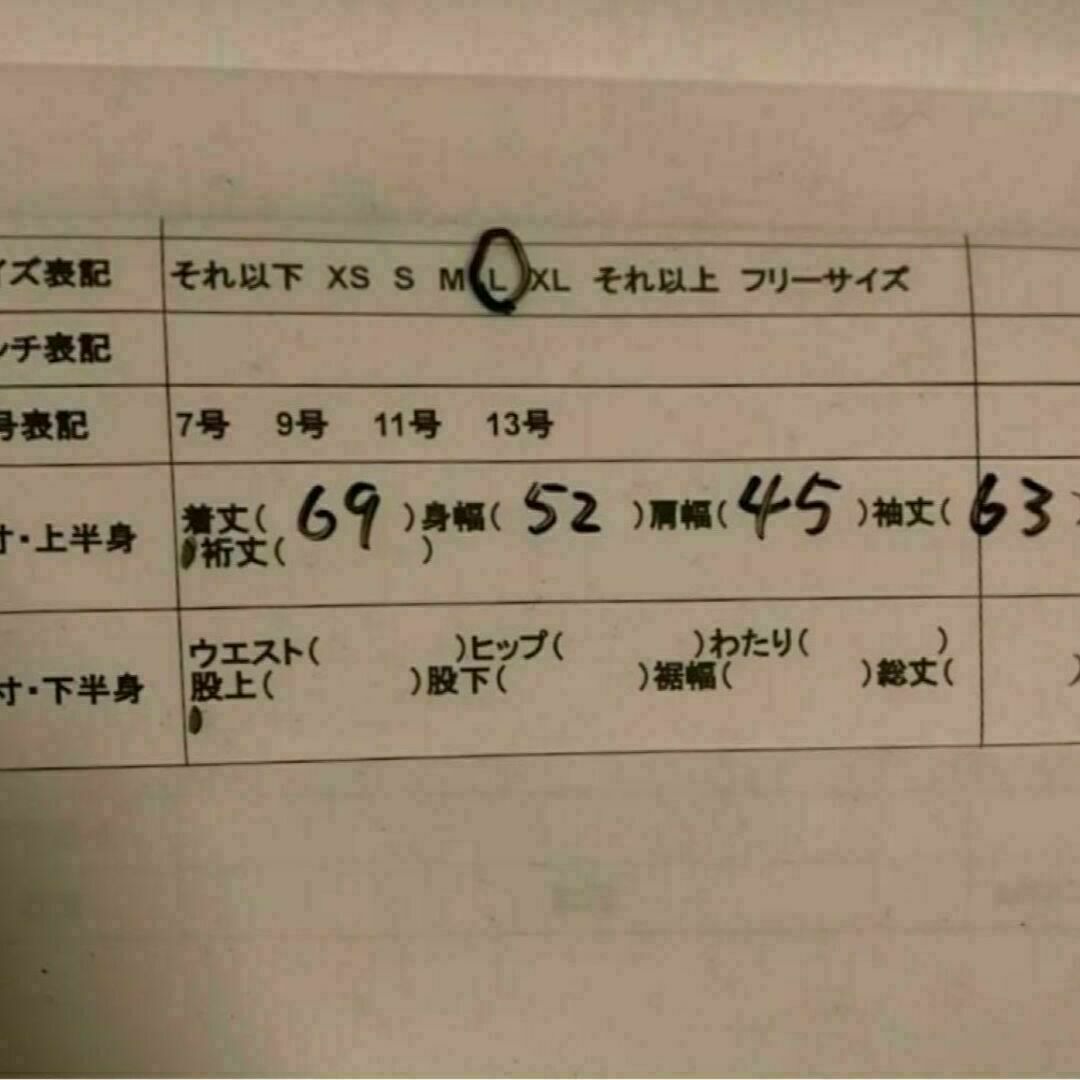 イズ表記 それ以下 XS S M L XL それ以上 フリーサイズ
ンチ表記
号表記 7号 9号 11号 13号
着丈( 69 )身幅( 52 )肩幅( 45 )袖丈( 63 )
寸・上半身
裄丈( )
ウエスト( )ヒップ( )わたり( )
寸・下半身
股上( )股下( )裾幅( )総丈( )